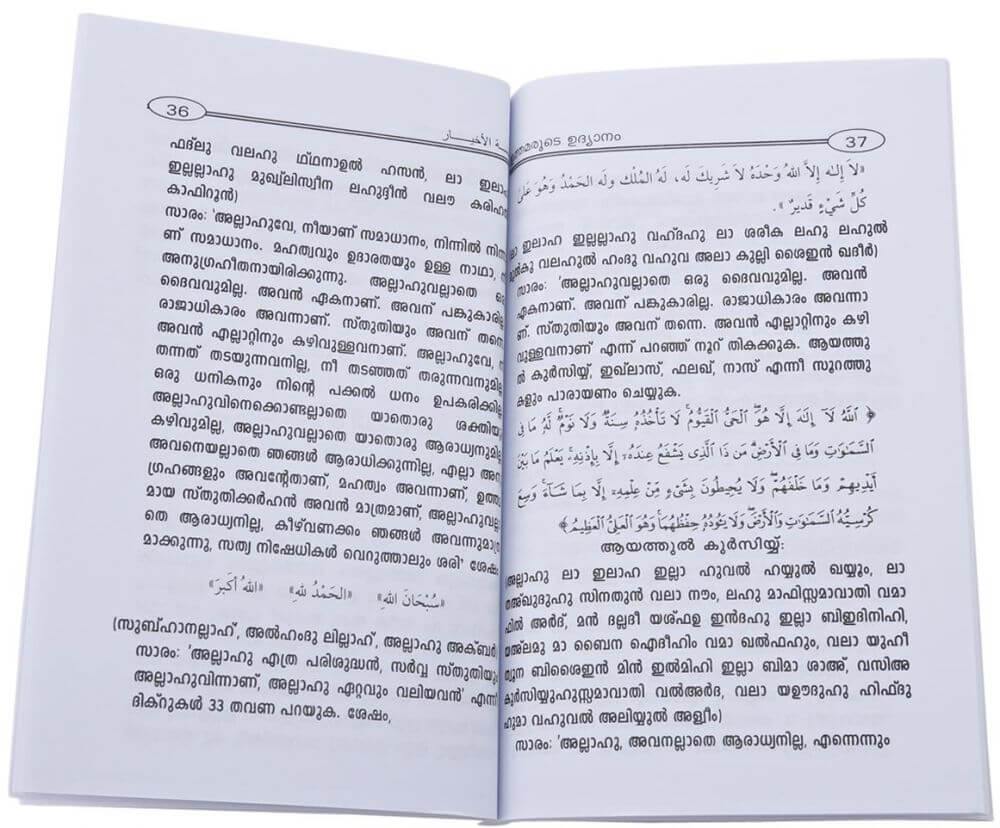 36
ـة الأخيـــار
ഫദ്‌ലു വലഹു ഥ്ഥനാഉൽ ഹസൻ. ലാ ഇലാഹ
ഇല്ലല്ലാഹു മുഖ്‌ലിസ്വീന ലഹുദ്ദീൻ വലൗ കരിഹൽ
കാഫിറൂൻ)
സാരം: 'അല്ലാഹുവേ, നീയാണ് സമാധാനം, നിന്നിൽ നിന്ന
ണ് സമാധാനം. മഹത്വവും ഉദാരതയും ഉള്ള നാഥാ, നീ
അനുഗ്രഹീതനായിരിക്കുന്നു. അല്ലാഹുവല്ലാതെ ഒരു
ദൈവവുമില്ല. അവൻ ഏകനാണ്. അവന് പങ്കുകാരില്ല
രാജാധികാരം അവന്നാണ്. സ്തുതിയും അവന് തന്നെ
അവൻ എല്ലാറ്റിനും കഴിവുള്ളവനാണ്. അല്ലാഹുവേ, നീ
തന്നത് തടയുന്നവനില്ല, നീ തടഞ്ഞത് തരുന്നവനുമില്ല
ഒരു ധനികനും നിന്റെ പക്കൽ ധനം ഉപകരിക്കില്ല
അല്ലാഹുവിനെക്കൊണ്ടല്ലാതെ യാതൊരു ശക്തിയു
കഴിവുമില്ല, അല്ലാഹുവല്ലാതെ യാതൊരു ആരാധ്യനുമില്ല
അവനെയല്ലാതെ ഞങ്ങൾ ആരാധിക്കുന്നില്ല, എല്ലാ അനു
ഗ്രഹങ്ങളും അവന്റേതാണ്, മഹത്വം അവന്നാണ്, ഉത്ത
മായ സ്തുതിക്കർഹൻ അവൻ മാത്രമാണ്, അല്ലാഹുവല്ലാ
തെ ആരാധ്യനില്ല, കീഴ്‌വണക്കം ഞങ്ങൾ അവന്നുമാത്ര
മാക്കുന്നു, സത്യ നിഷേധികൾ വെറുത്താലും ശരി' ശേഷം
«سُبْحَانَ اللهِ» «الحَمْدُ لِلهِ» «اللهُ أَكْبَرَ»
(സുബ്ഹാനല്ലാഹ്, അൽഹംദു ലില്ലാഹ്, അല്ലാഹു അക്ബർ
സാരം: 'അല്ലാഹു എത്ര പരിശുദ്ധൻ, സർവ്വ സ്തുതിയും
അല്ലാഹുവിന്നാണ്, അല്ലാഹു ഏറ്റവും വലിയവൻ' എന്നീ
ദിക്റുകൾ 33 തവണ പറയുക. ശേഷം,
ത്തമരുടെ ഉദ്യാനം
37
«لاَ إِلـٰه إِلاَّ اللهُ وَحْدَهُ لاَ شَرِيكَ لَه، لَهُ المُلْك وَله الحَمْدُ وَهُوَ عَلىٰ
كُلِّ شَيْءٍ قَدِيرٌ ».
ലാ ഇലാഹ ഇല്ലല്ലാഹു വഹ്ദഹു ലാ ശരീക ലഹു ലഹുൽ
മുൽകു വലഹുൽ ഹംദു വഹുവ അലാ കുല്ലി ശൈഇൻ ഖദീർ)
സാരം: 'അല്ലാഹുവല്ലാതെ ഒരു ദൈവവുമില്ല. അവൻ
ഏകനാണ്. അവന് പങ്കുകാരില്ല. രാജാധികാരം അവന്നാ
ണ്. സ്തുതിയും അവന് തന്നെ. അവൻ എല്ലാറ്റിനും കഴി
വുള്ളവനാണ് എന്ന് പറഞ്ഞ് നൂറ് തികക്കുക. ആയത്തു
ൽ കുർസിയ്യ്, ഇഖ്ലാസ്, ഫലഖ്, നാസ് എന്നീ സൂറത്തു
കളും പാരായണം ചെയ്യുക.
﴿ اللَّهُ لَآ إِلَٰهَ إِلَّا هُوَ ٱلْحَىُّ ٱلْقَيُّومُ ۚ لَا تَأْخُذُهُۥ سِنَةٌ وَلَا نَوْمٌ ۚ لَّهُۥ مَا فِى
ٱلسَّمَٰوَٰتِ وَمَا فِى ٱلْأَرْضِ ۗ مَن ذَا ٱلَّذِى يَشْفَعُ عِندَهُۥٓ إِلَّا بِإِذْنِهِۦ ۚ يَعْلَمُ مَا بَيْنَ
أَيْدِيهِمْ وَمَا خَلْفَهُمْ ۖ وَلَا يُحِيطُونَ بِشَىْءٍ مِّنْ عِلْمِهِۦٓ إِلَّا بِمَا شَآءَ ۚ وَسِعَ
كُرْسِيُّهُ ٱلسَّمَٰوَٰتِ وَٱلْأَرْضَ ۖ وَلَا يَـُٔودُهُۥ حِفْظُهُمَا ۚ وَهُوَ ٱلْعَلِىُّ ٱلْعَظِيمُ ﴾
ആയത്തുൽ കുർസിയ്യ്:
അല്ലാഹു ലാ ഇലാഹ ഇല്ലാ ഹുവൽ ഹയ്യുൽ ഖയ്യൂം, ലാ
തഅ്ഖുദുഹു സിനതുൻ വലാ നൗം, ലഹു മാഫിസ്സമാവാതി വമാ
ഫിൽ അർദ്, മൻ ദല്ലദീ യശ്ഫഉ ഇൻദഹു ഇല്ലാ ബിഇദിനിഹി,
യഅ്ലമു മാ ബൈന ഐദീഹിം വമാ ഖൽഫഹും, വലാ യുഹീ
ത്വൂന ബിശൈഇൻ മിൻ ഇൽമിഹി ഇല്ലാ ബിമാ ശാഅ്, വസിഅ
കുർസിയ്യുഹുസ്സമാവാതി വൽഅർദ, വലാ യഊദുഹു ഹിഫ്ദു
ഹുമാ വഹുവൽ അലിയ്യുൽ അള്വീം)
സാരം: 'അല്ലാഹു, അവനല്ലാതെ ആരാധ്യനില്ല, എന്നെന്നും